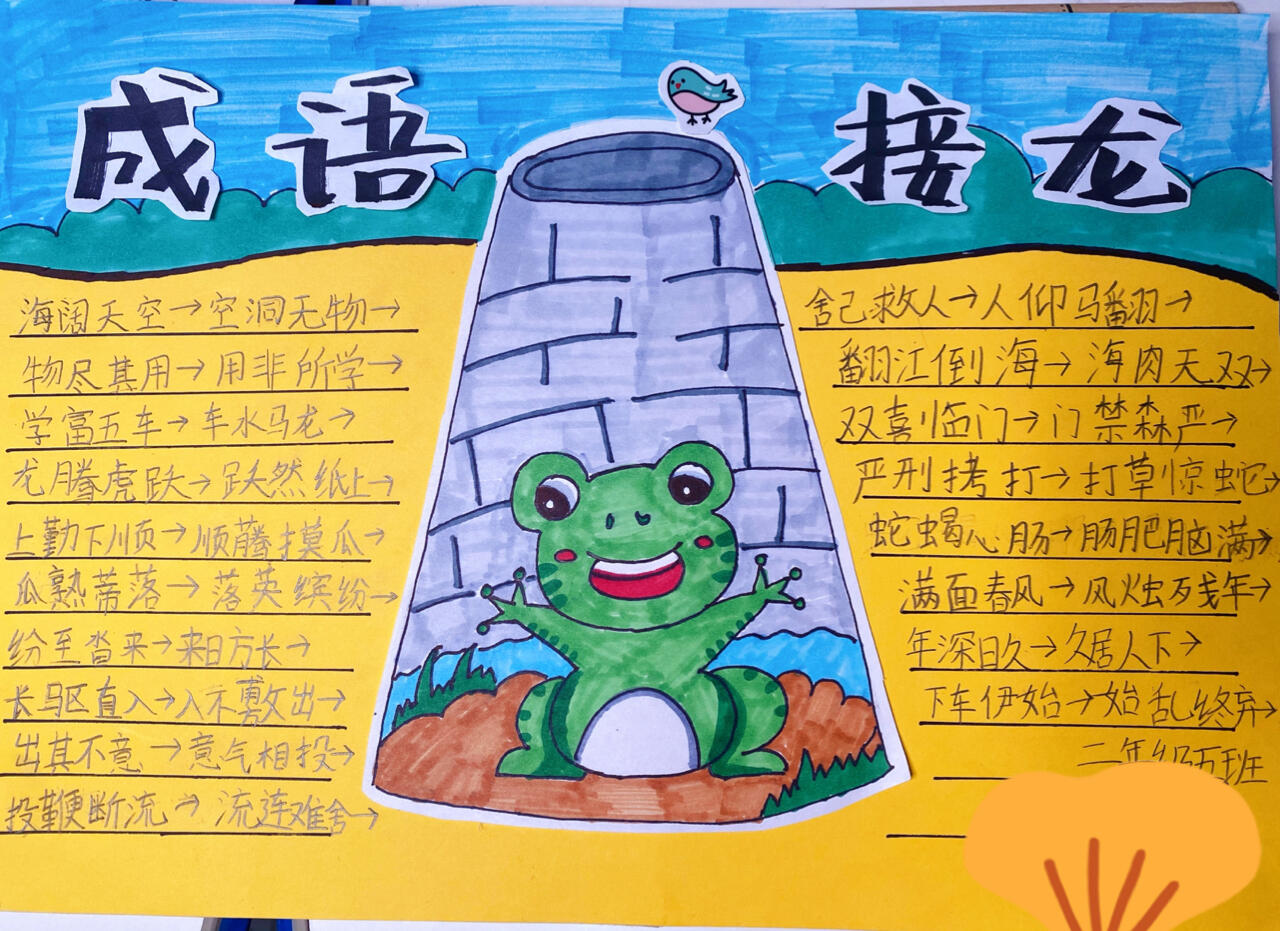 成语接龙
海阔天空→空洞无物→
物尽其用→用非所学→
学富五车→车水马龙→
龙腾虎跃→跃然纸上→
上勤下顺→顺藤摸瓜→
瓜熟蒂落→落英缤纷→
纷至沓来→来日方长→
长驱直入→入不敷出→
出其不意→意气相投→
投鞭断流→流连难舍→
舍己救人→人仰马翻→
翻江倒海→海肉天双→
双喜临门→门禁森严→
严刑拷打→打草惊蛇→
蛇蝎心肠→肠肥脑满→
满面春风→风烛残年→
年深日久→久居人下→
下车伊始→始乱终弃→
二年级五班